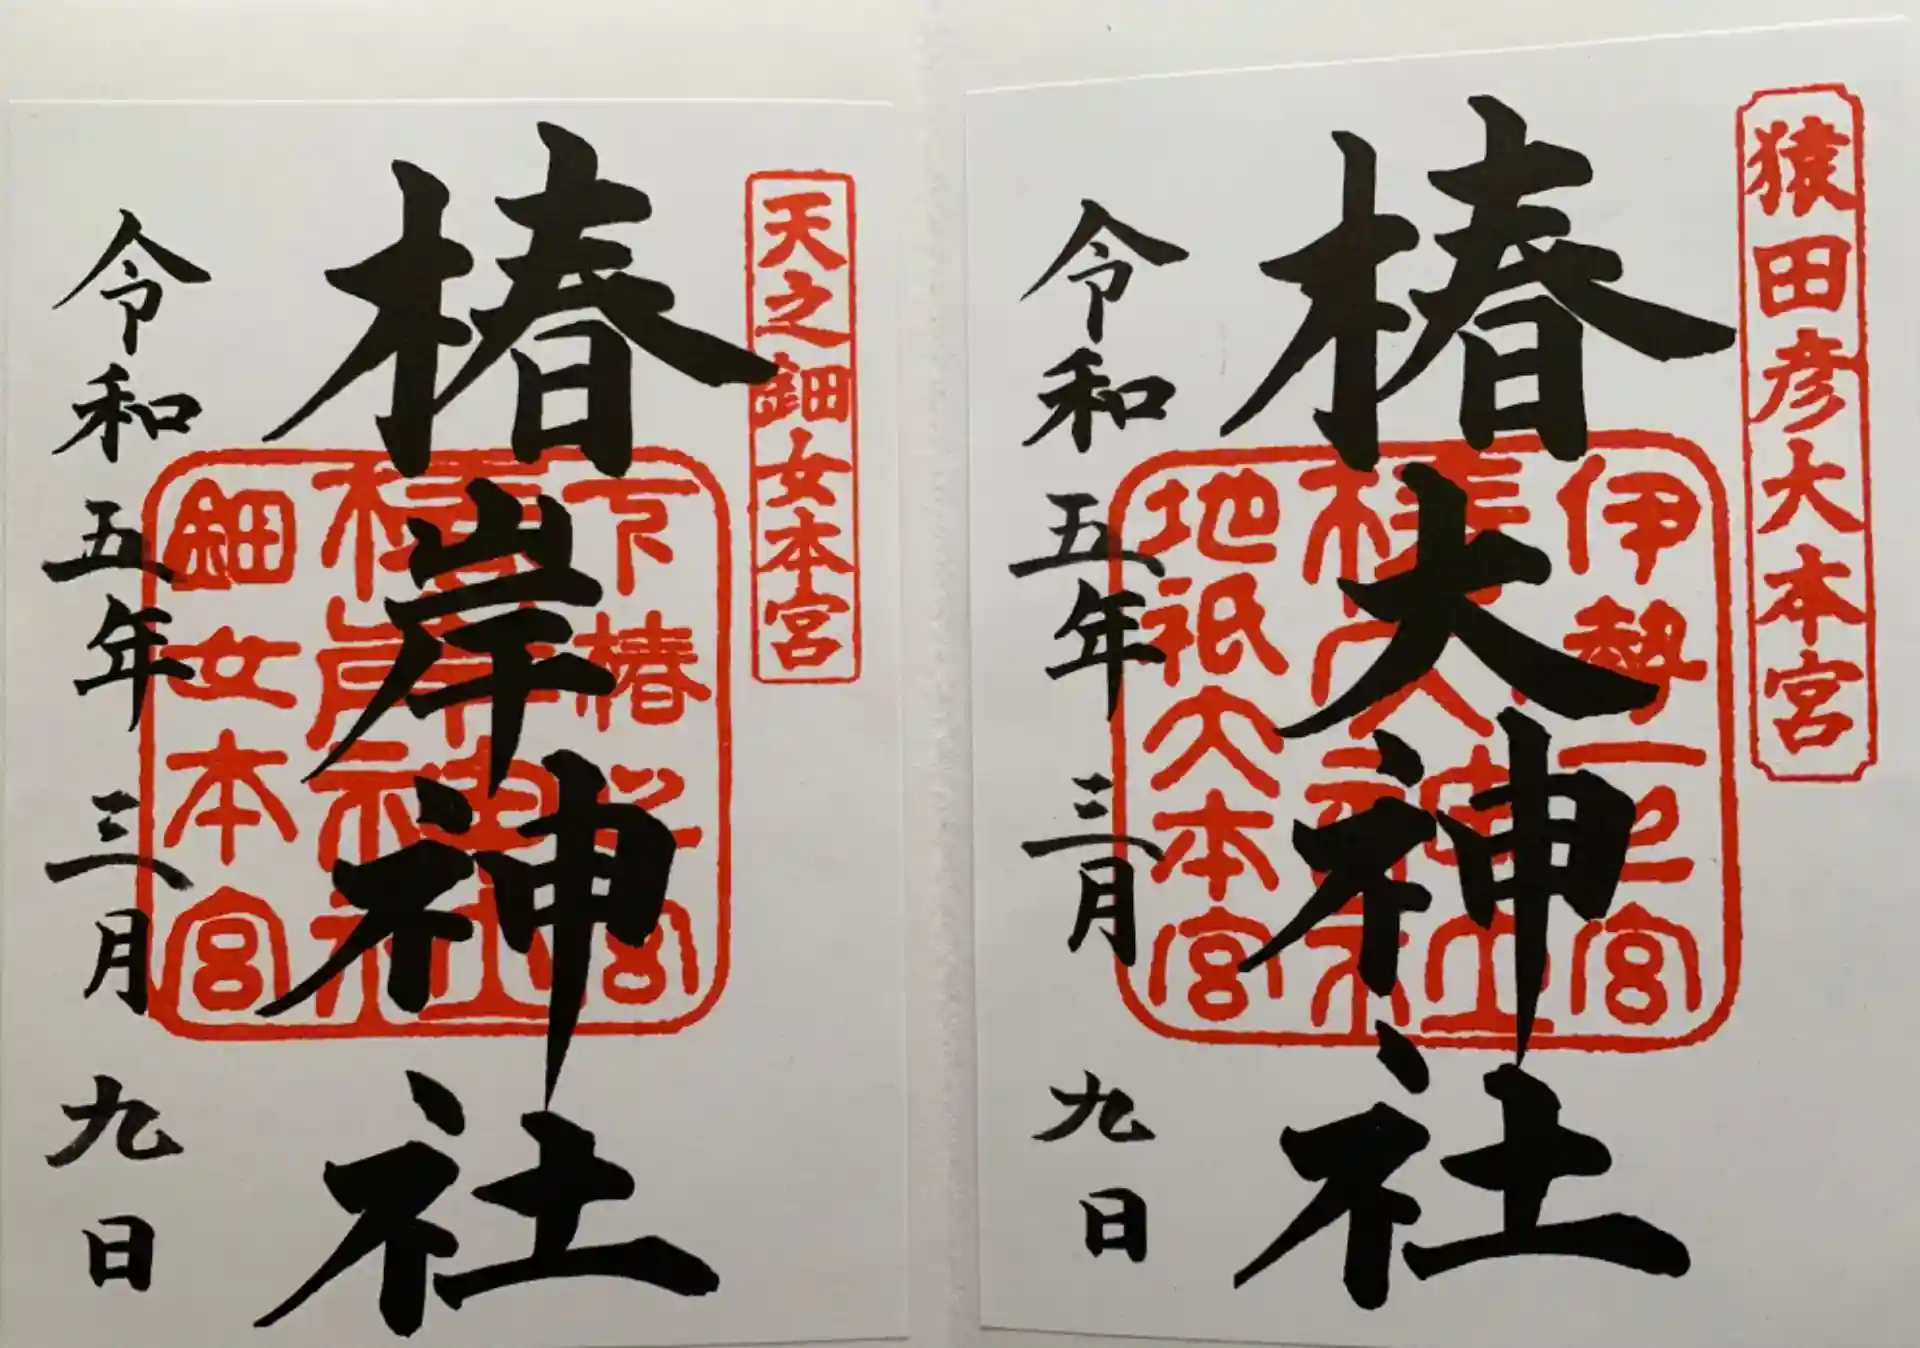 猿田彦大本宮
椿大神社
伊勢一之宮
地祇大本宮
令和五年三月九日
天之鈿女本宮
椿岸神社
下椿之宮
椿岸神社
鈿女本宮
令和五年三月九日